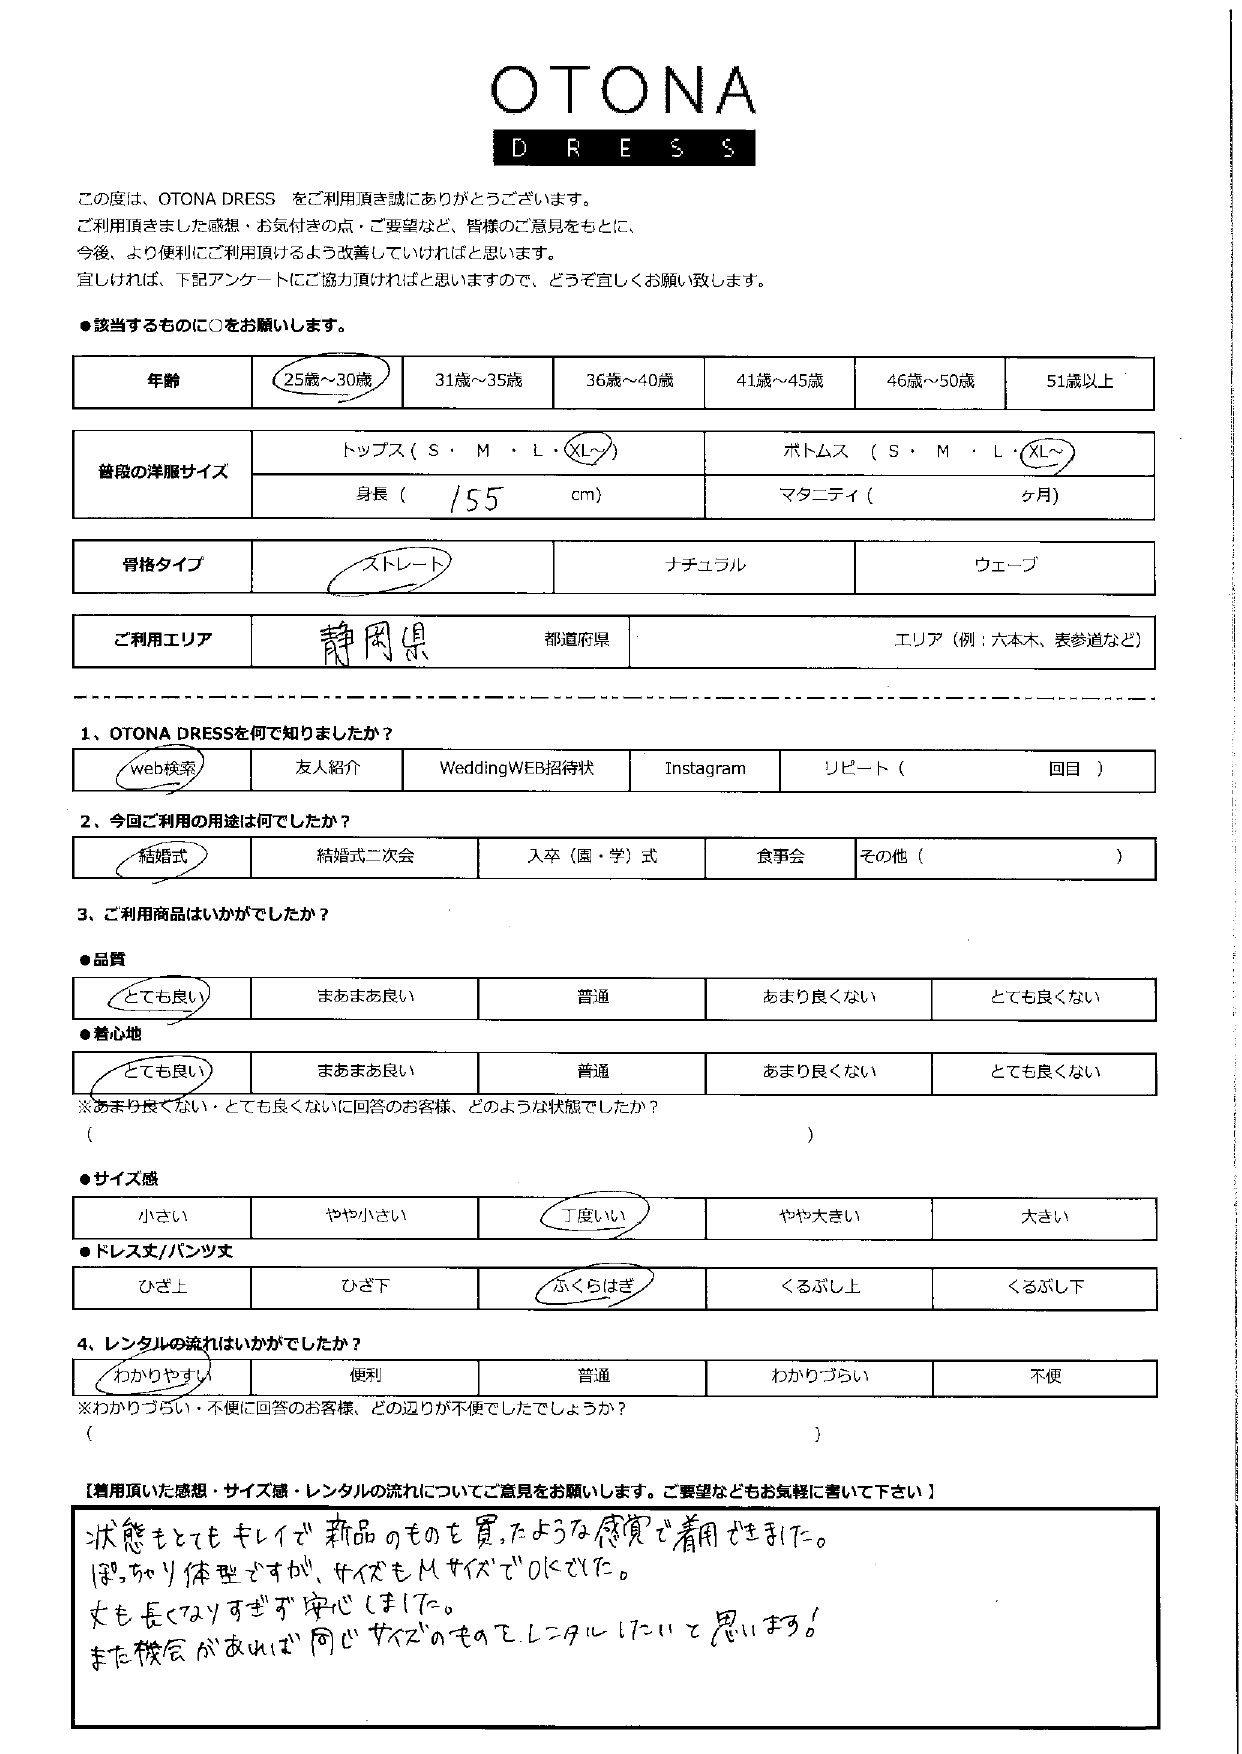 OTONA
DRESS
この度は、OTONA DRESS　をご利用頂き誠にありがとうございます。
ご利用頂きました感想・お気付きの点・ご要望など、皆様のご意見をもとに、
今後、より便利にご利用頂けるよう改善していければと思います。
宜しければ、下記アンケートにご協力頂ければと思いますので、どうぞ宜しくお願い致します。
●該当するものに○をお願いします。
年齢 25歳～30歳 31歳～35歳 36歳～40歳 41歳～45歳 46歳～50歳 51歳以上
普段の洋服サイズ トップス ( S ・ M ・ L ・ XL～ ) ボトムス ( S ・ M ・ L ・ XL～ )
身長 ( 155 cm) マタニティ ( ヶ月)
骨格タイプ ストレート ナチュラル ウェーブ
ご利用エリア 静岡県 都道府県 エリア（例：六本木、表参道など）
1、OTONA DRESSを何で知りましたか？
web検索 友人紹介 WeddingWEB招待状 Instagram リピート（ 回目 ）
2、今回ご利用の用途は何でしたか？
結婚式 結婚式二次会 入卒（園・学）式 食事会 その他（ ）
3、ご利用商品はいかがでしたか？
●品質
とても良い まあまあ良い 普通 あまり良くない とても良くない
●着心地
とても良い まあまあ良い 普通 あまり良くない とても良くない
※あまり良くない・とても良くないに回答のお客様、どのような状態でしたか？
( )
●サイズ感
小さい やや小さい 丁度いい やや大きい 大きい
●ドレス丈/パンツ丈
ひざ上 ひざ下 ふくらはぎ くるぶし上 くるぶし下
4、レンタルの流れはいかがでしたか？
わかりやすい 便利 普通 わかりづらい 不便
※わかりづらい・不便に回答のお客様、どの辺りが不便でしたでしょうか？
( )
【着用頂いた感想・サイズ感・レンタルの流れについてご意見をお願いします。ご要望などもお気軽に書いて下さい】
状態もとてもキレイで新品のものを買ったような感覚で着用できました。
ぽっちゃり体型ですが、サイズもMサイズでOKでした。
丈も長くなりすぎず安心しました。
また機会があれば同じサイズのものをレンタルしたいと思います!